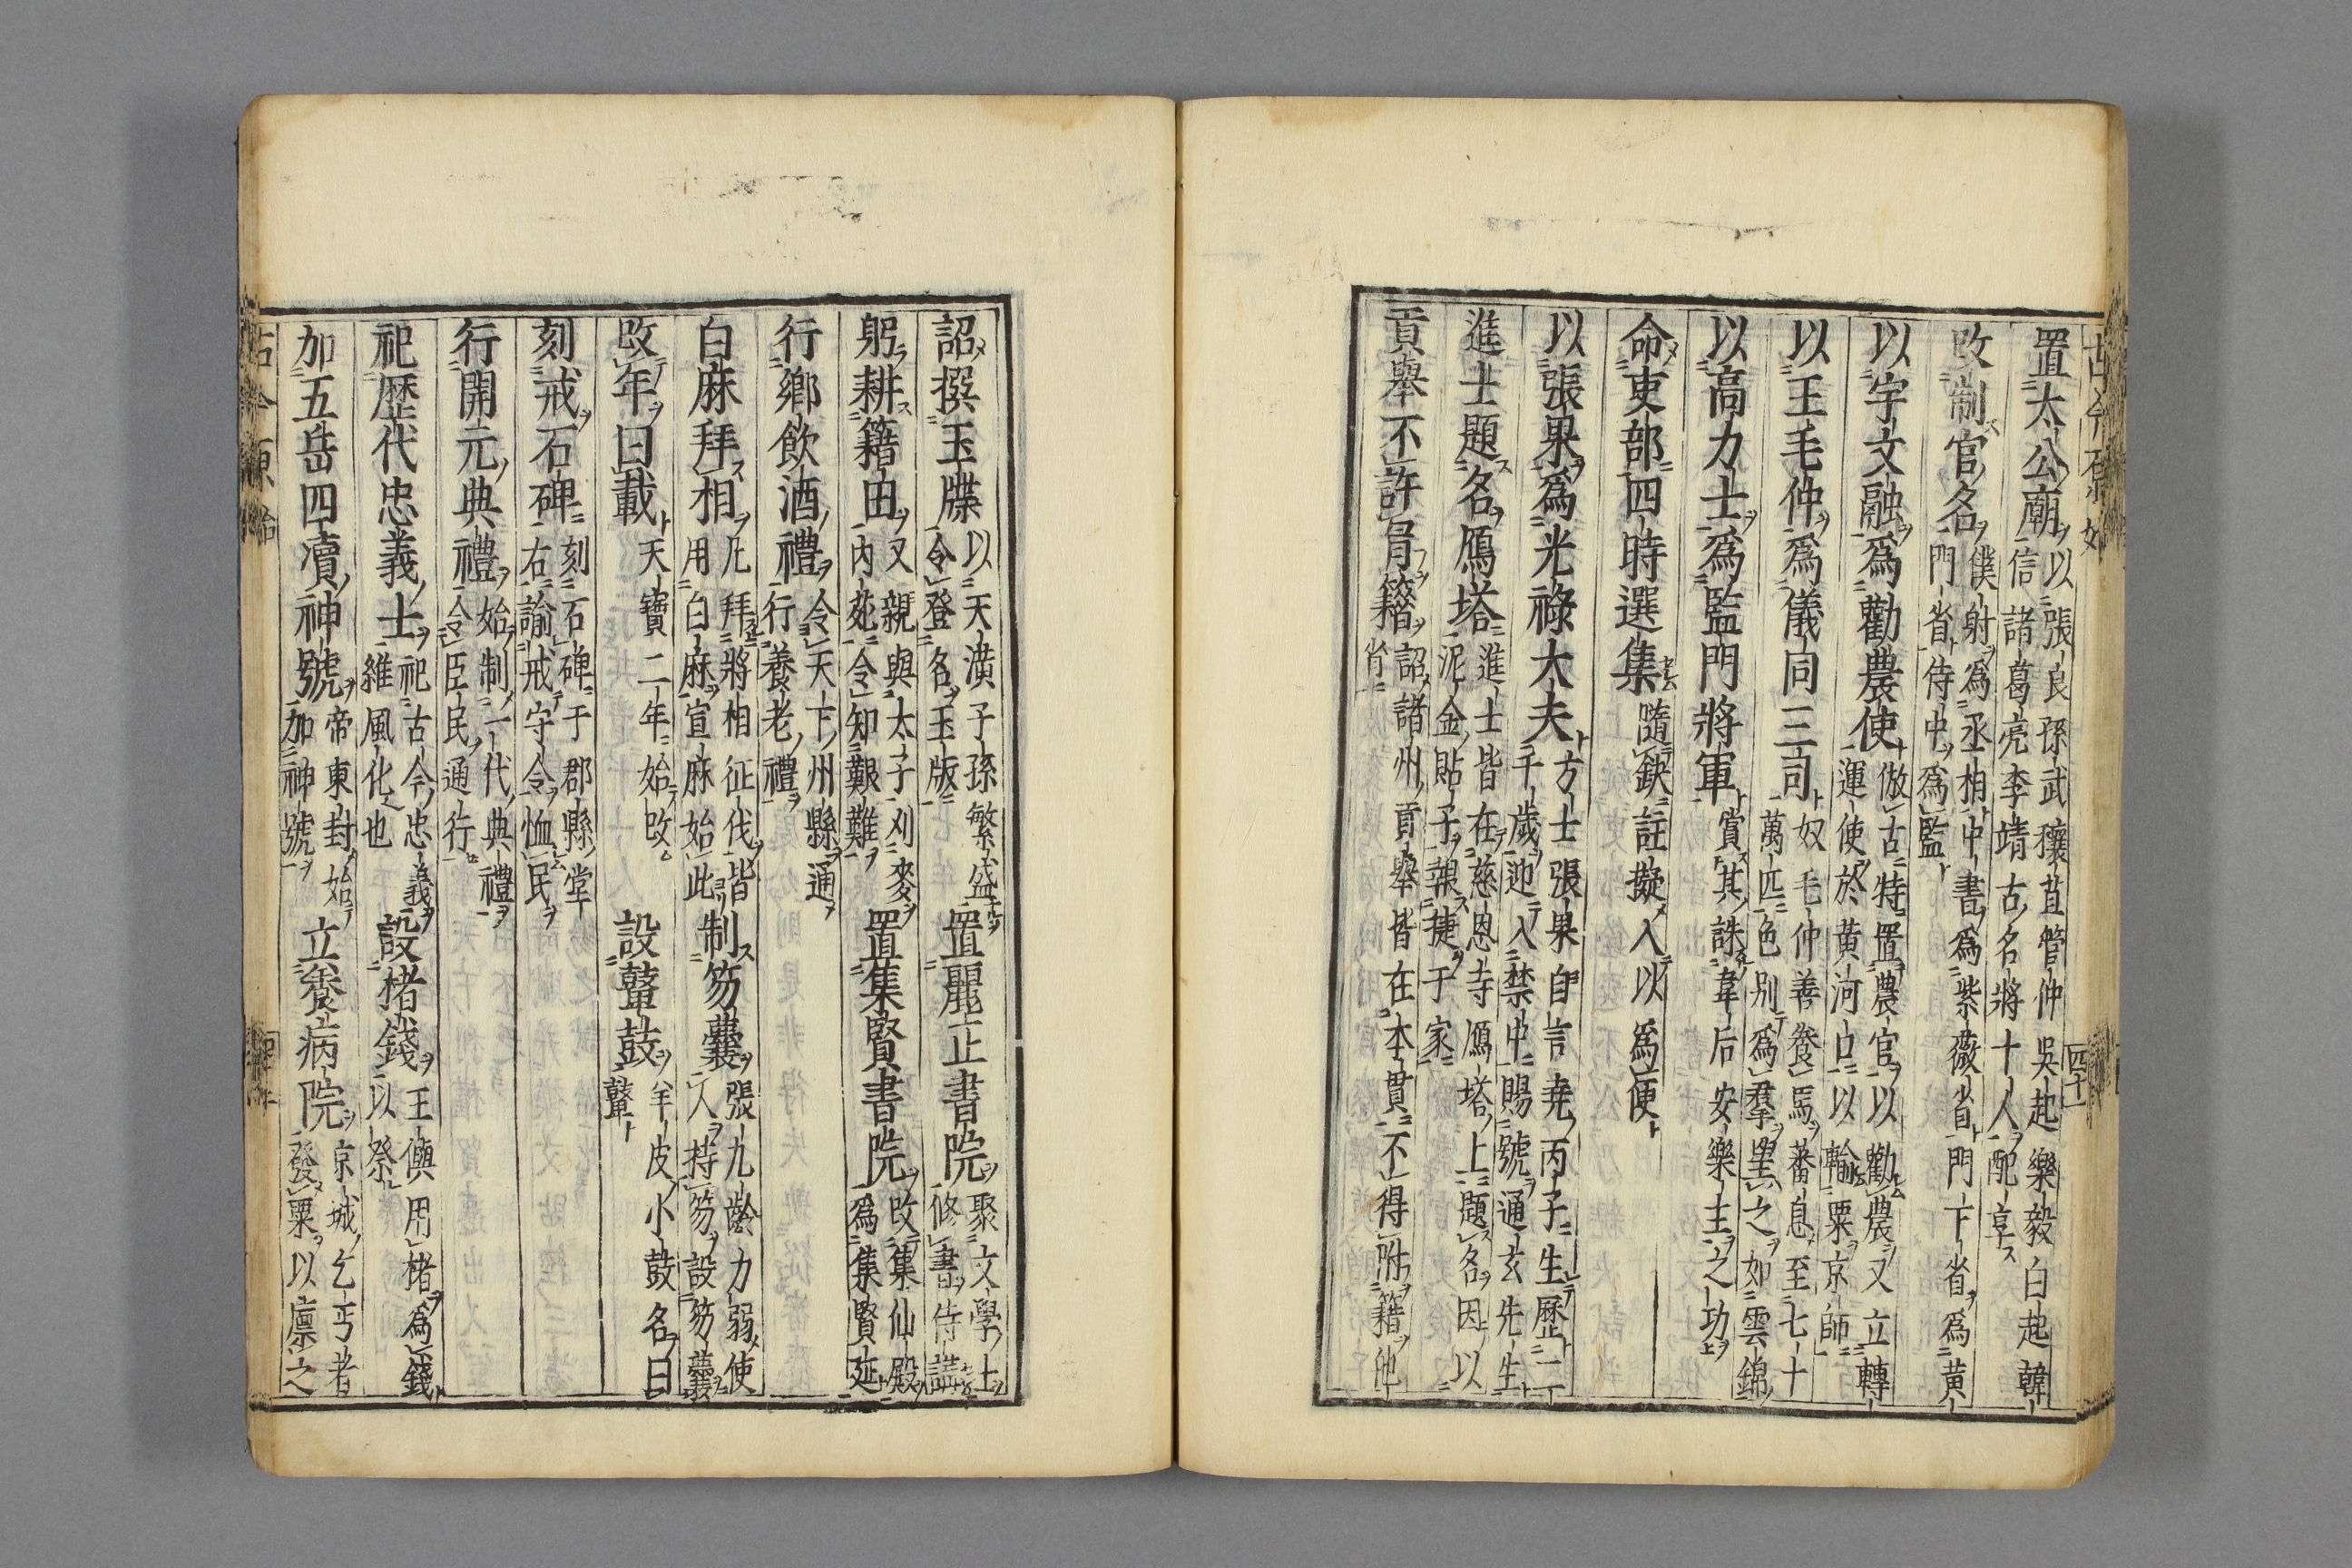 古今原始
四十一
置太公廟
以張良孫武穰苴管仲吳起樂毅白起韓
信諸葛亮李靖古名將十人配享
改制官名
僕射爲丞相中書爲紫薇省門下省爲黃
門省侍中爲監
以宇文融爲勸農使
倣古特置農官以勸農又立轉
運使於黃河口以輸粟京師
以王毛仲爲儀同三司
奴毛仲善養馬蕃息至七十
萬匹色別爲羣異之如雲錦
以高力士爲監門將軍
賞其誅韋后安樂主之功
命吏部四時選集
隨缺註擬入以爲便
以張果爲光祿大夫
方士張果自言堯丙子生歷二
千歲迎入禁中賜號通玄先生
進士題名鴈塔
進士皆在慈恩寺鴈塔上題名因以
泥金貼子報捷于家
貢舉不許冒籍
詔諸州貢舉皆在本貫不得附籍他
省
詔撰玉牒
以天潢子孫繁盛
令登名玉版
置麗正書院
聚文學士
修書侍講
躬耕籍田
又親與太子刈麥
內苑令知艱難
置集賢書院
改集仙殿
爲集賢延
行鄉飲酒禮
令天下州縣通
行養老禮
白麻拜相
凡拜將相征伐皆
用白麻宣麻始此
制笏囊
張九齡力弱使
人持笏設笏囊
改年曰載
天寶二年始改
設鼙鼓
羊皮小鼓名曰
鼙
刻戒石碑
刻石碑于郡縣堂
右諭戒守令恤民
行開元典禮
始制一代典禮
令臣民通行
祀歷代忠義士
祀古今忠義
維風化也
設楮錢
王璵用楮爲錢
以祭
加五岳四瀆神號
帝東封始
加神號
立養病院
京城乞丐者
發粟以廩之
古今原始